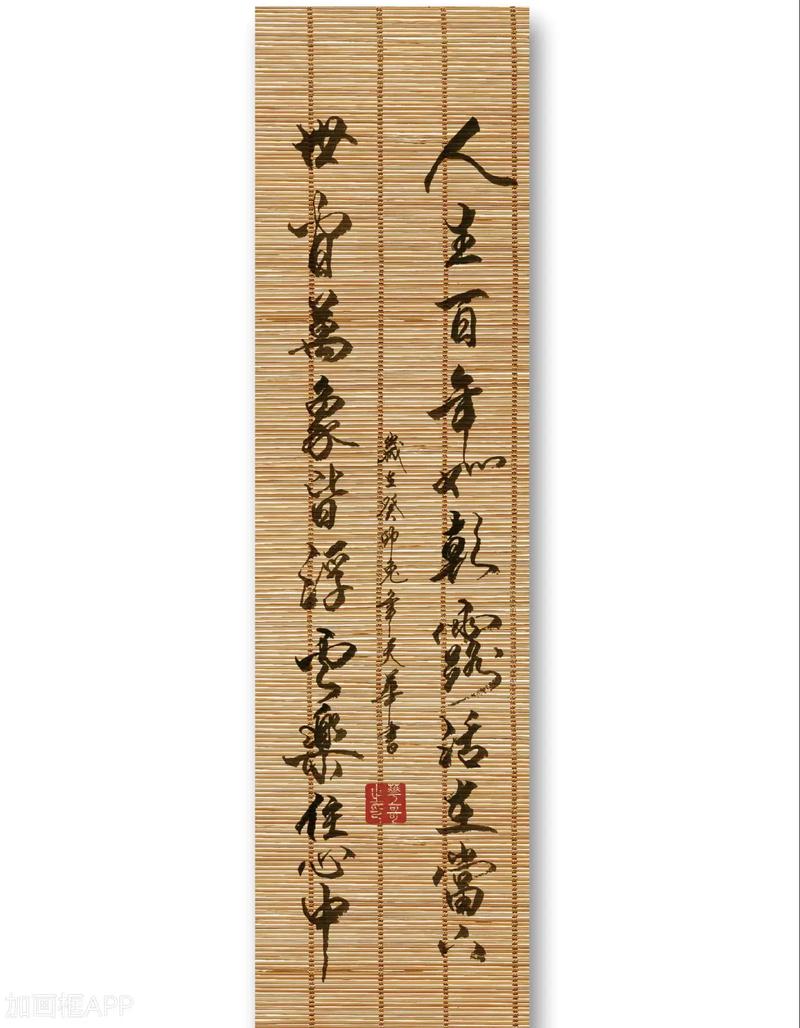 人生百年如朝露活在當下
世間萬象皆浮雲樂住心中
歲在癸卯兔年天華書
加画框APP